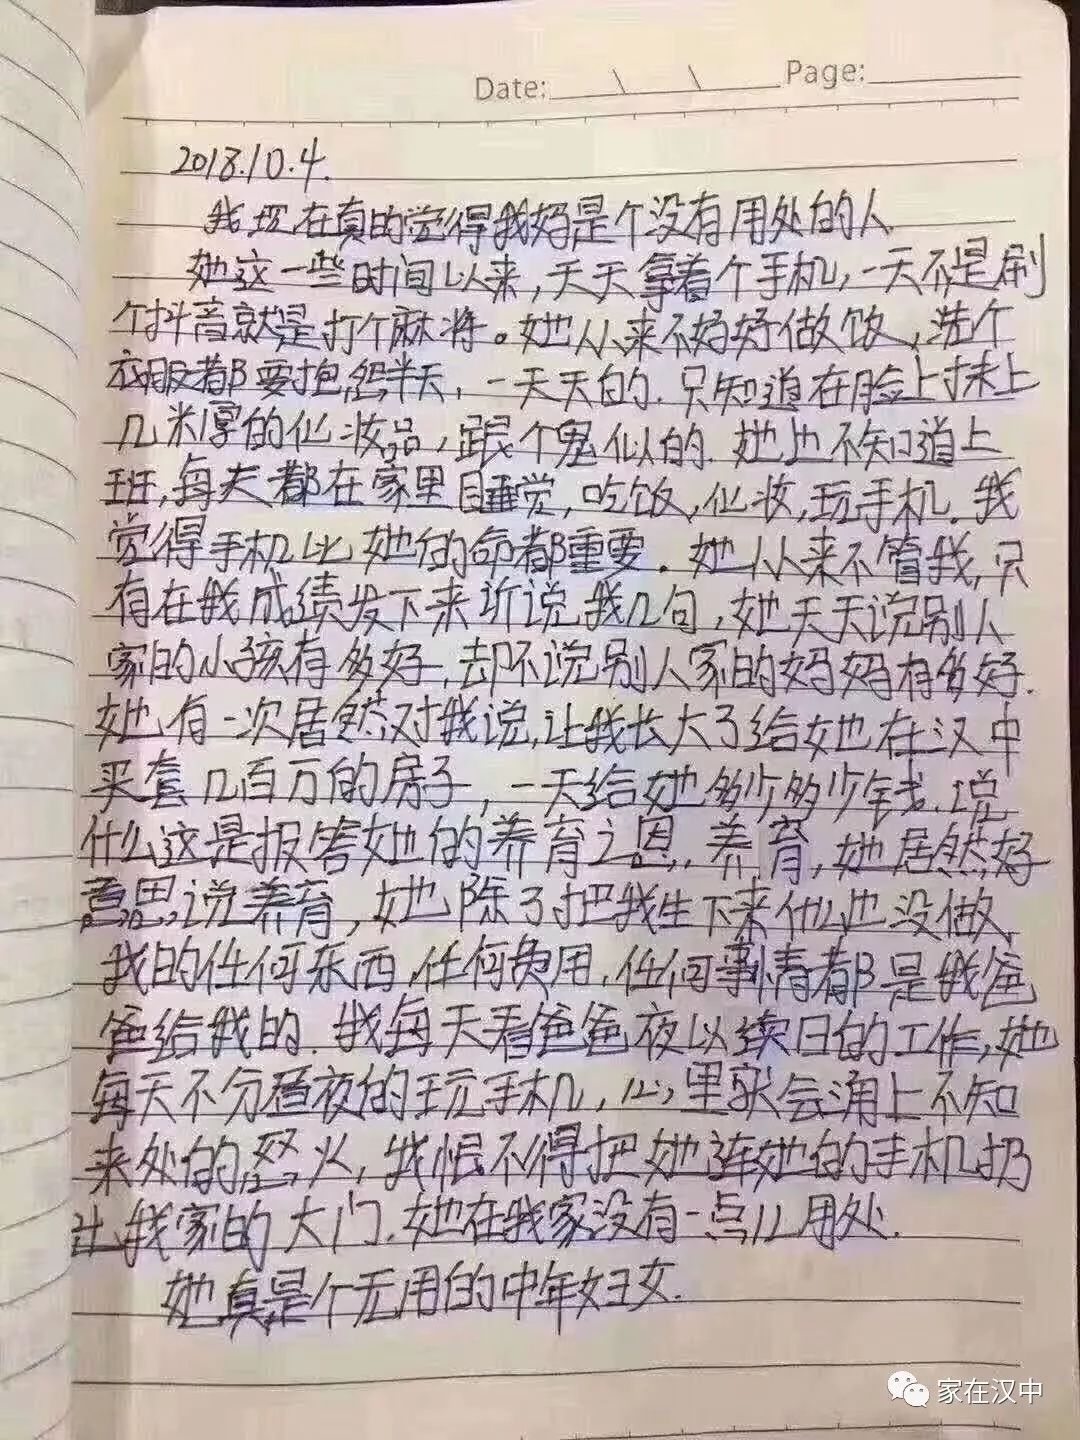 Date: \ \ Page:
2018.10.4.
我现在真的觉得我妈是个没有用处的人
她这一些时间以来,天天拿着个手机,一天不是刷
个抖音就是打个麻将。她从来不好好做饭,洗个
衣服都要抱怨半天,一天天的.只知道在脸上抹上
几米厚的化妆品,跟个鬼似的.她也不知道上
班,每天都在家里睡觉,吃饭,化妆,玩手机.我
觉得手机比她的命都重要。她从来不管我,只
有在我成绩发下来听说我几句,她天天说别人
家的小孩有多好,却不说别人家的妈妈有多好.
她有一次居然对我说,让我长大了给她在汉中
买套几百万的房子,一天给她多少多少钱.说
什么这是报答她的养育之恩,养育,她居然好
意思说养育,她除了把我生下来什么也没做,
我的任何东西,任何费用,任何事情都是我爸
爸给我的.我每天看爸爸夜以续日的工作,她
每天不分昼夜的玩手机,心里就会涌上不知
来处的怒火,我恨不得把她连她的手机扔
出我家的大门.她在我家没有一点儿用处.
她真是个无用的中年妇女.
家在汉中